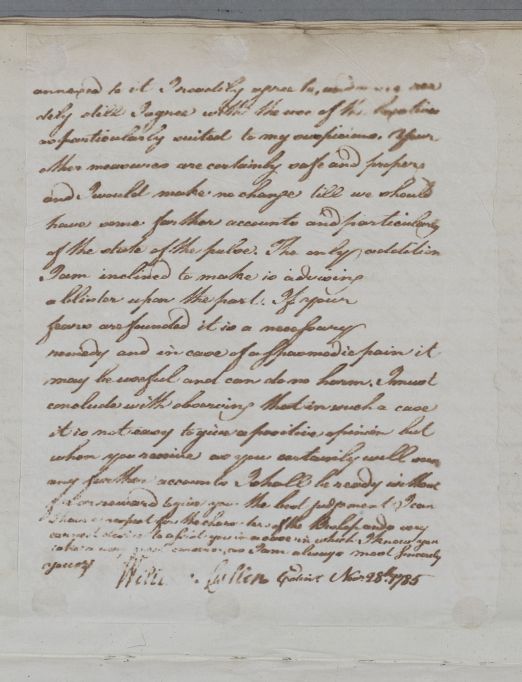 annexed to it I readily agree to, and more rea
dily still I agree with the use of the laxatives
as particularly suited to my suspicions. Your
other measures are certainly safe and proper
and I would make no change till we should
have some farther accounts and particularly
of the state of the pulse. The only addition
I am inclined to make is advising
a blister upon the part. If your
fears are founded it is a necessary
remedy and in case of a spasmodic pain it
may be useful and can do no harm. I must
conclude with observing that in such a case
it is not easy to give a positive opinion but
when you receive as you certainly will
any further accounts I shall be ready without
reward to give you the best judgment I can
I have a respect for the character of the Bishop and a very
to assist you in a case in which I know you
concern, as I am always most sincerely
yours William Cullen Edinr. Nov. 28th. 1785